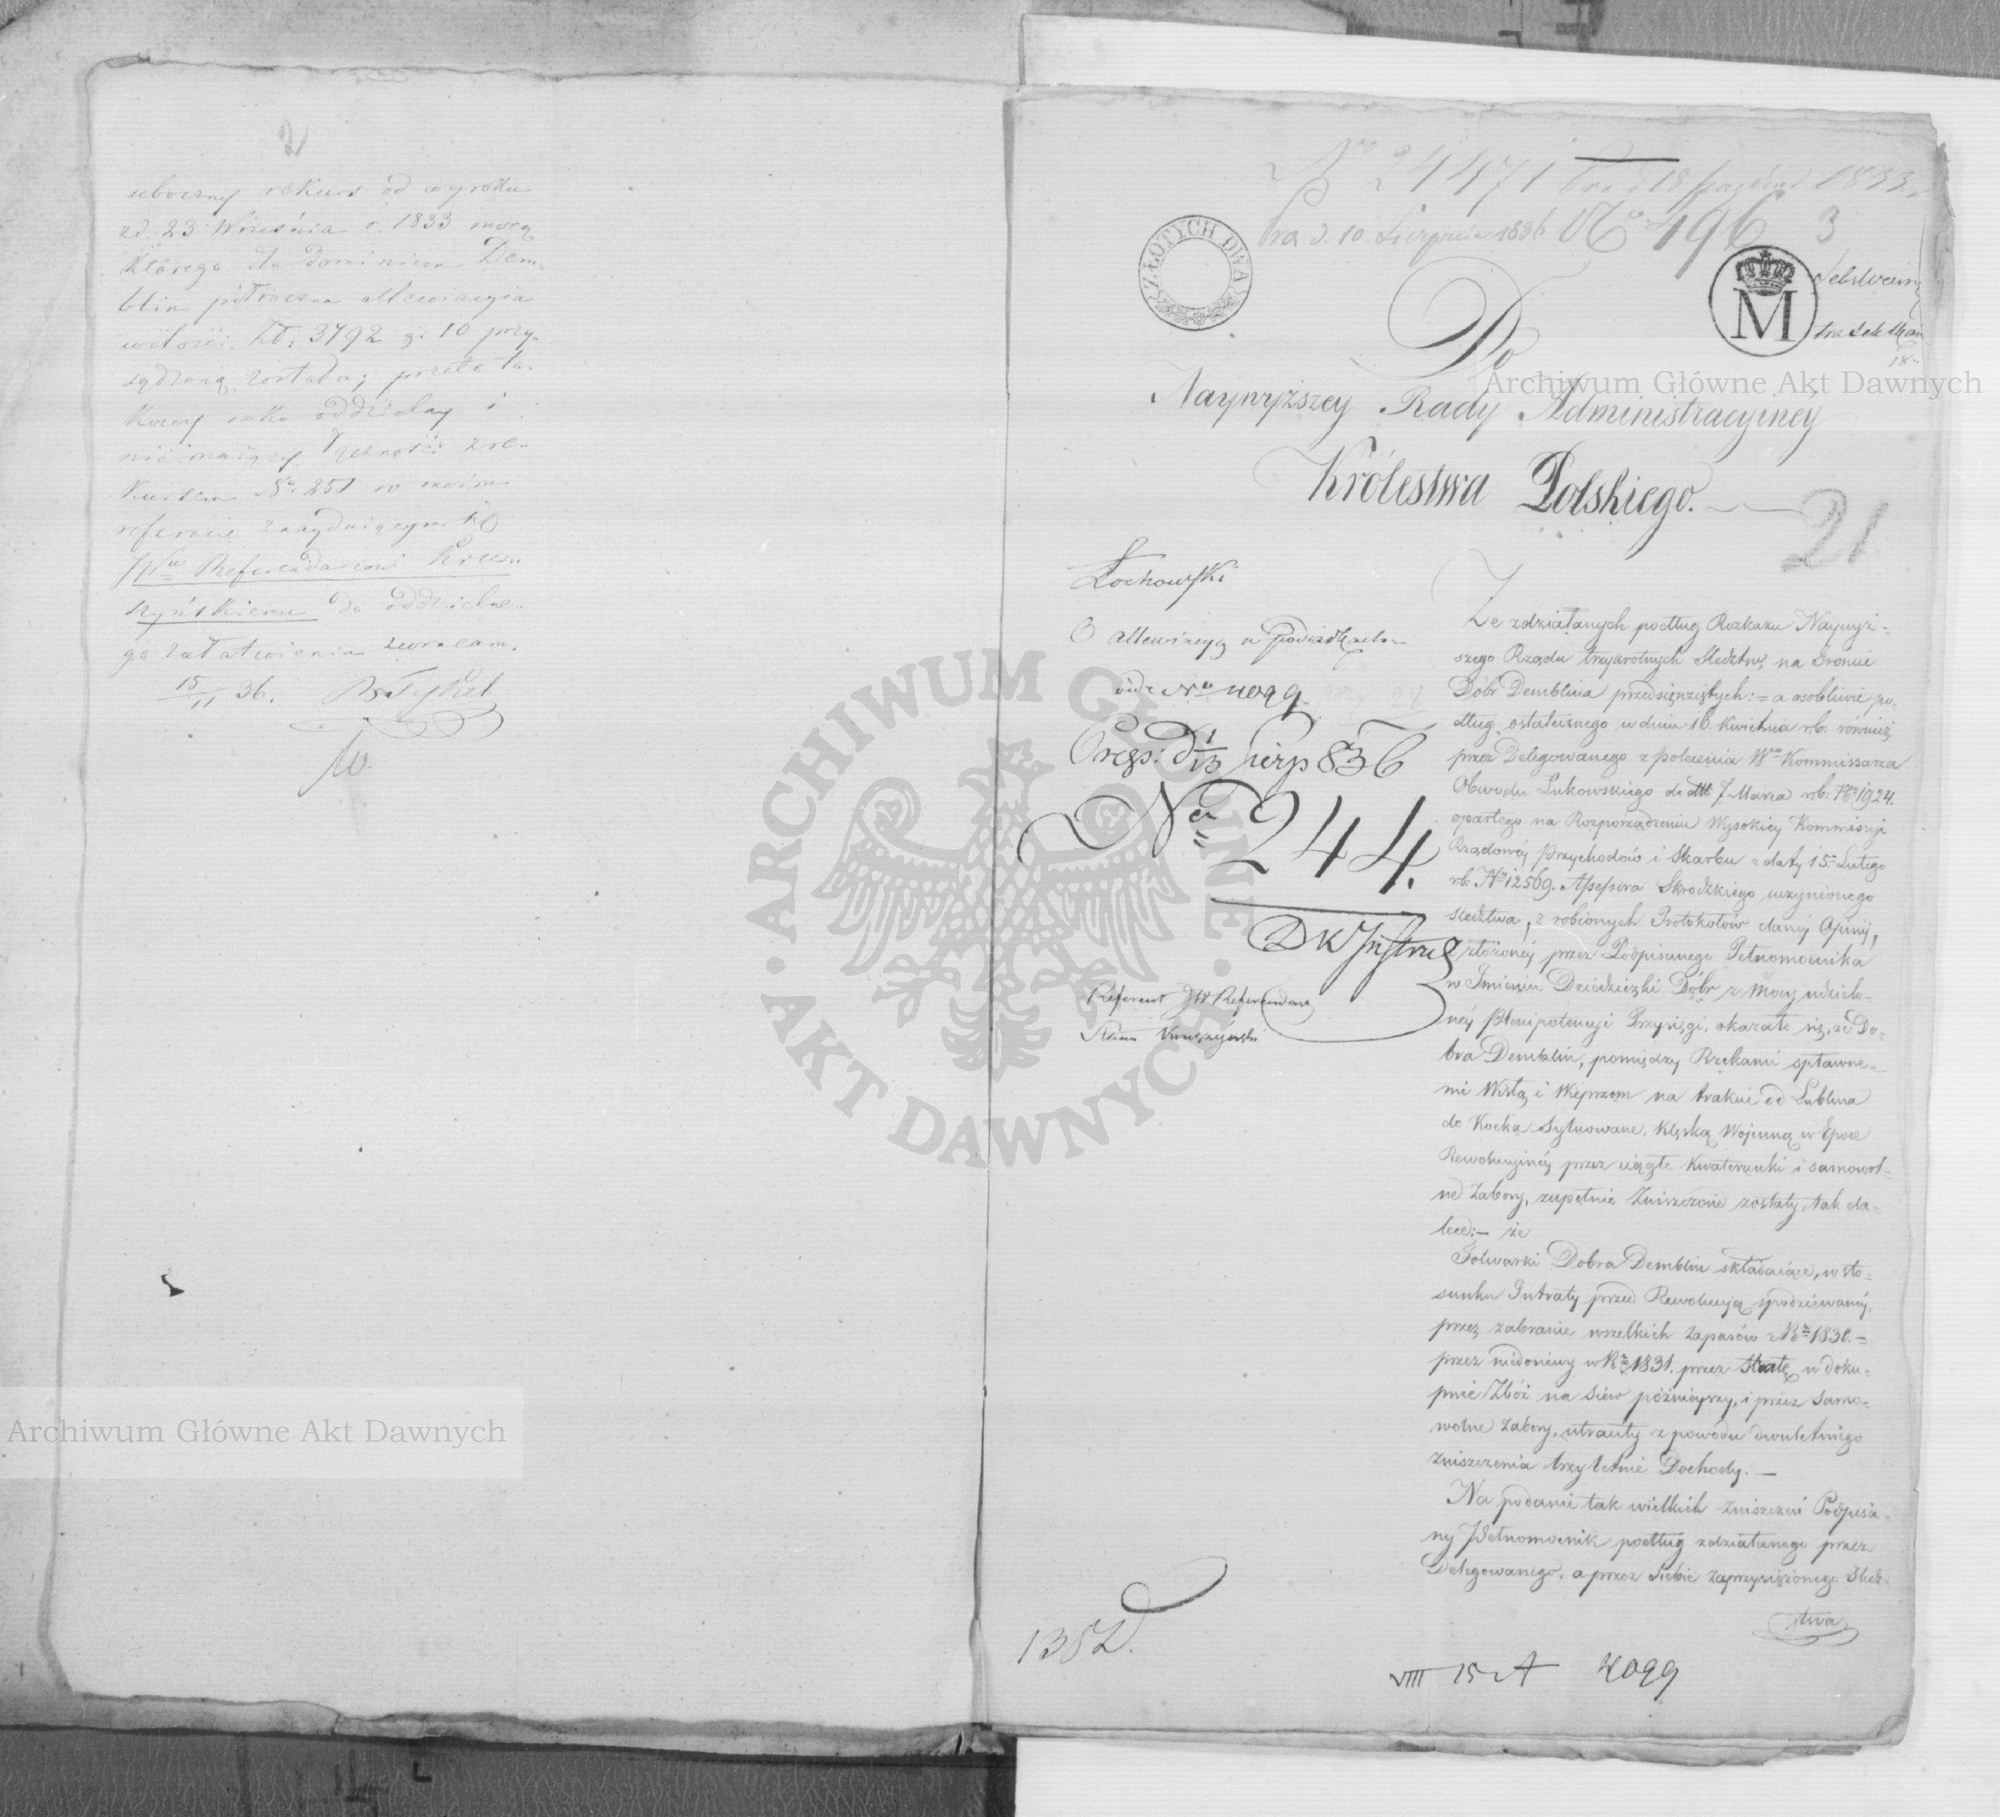 2
uboczny rekurs od wyroku
z d. 23 Września r. 1833 mocą
którego dla Dominium Dem-
blin półroczna allewiacyia
w ilości Zł: 3792 g: 10 przy-
sądzoną została; przeto ta-
kowy jako oddzielny i
nie maiący łączności z re-
kursem Nr. 251 w moim
referacie znayduiącym się
JWu Referendarzowi Krus-
zyńskiemu do oddzielne-
go załatwienia zwracam.
15/11 36.
W.
Nro 24471 pra d 18 1833
pra d. 10 Sierpnia 1836 No 496 3
ZŁOTYCH DWA
M
Do
Naywyższey Rady Administracyiney
Królestwa Polskiego.
21
Łochowski
O allewiacyą
vide Nro 4099
Preps: d 1/13 Sierp 836
Nr 244.
Referent JW Referendarz
Stanu
Ze zdziałanych podług Rozkazu Naywyż-
szego Rządu trzykrotnych śledztw, na Gruncie
Dóbr Demblina przedsięwziętych: = a osobliwie po-
dług ostatecznego w dniu 16. Kwietna r.b. również
przez Delegowanego z polecenia Wgo Kommissarza
Obwodu Łukowskiego de dtt 7 Marca r.b. Nro 1924.
opartego na Rozporządzeniu Wysokiey Kommissyi
Rządowéy Przychodów i Skarbu z daty 15. Lutego
r.b. No 12569. Assessora Skrodzkiego uczynionego
śledztwa, z robionych Protokołów danéy Opinii,
złożonéy przez Podpisanego Pełnomocnika
w Imieniu Dziedziczki Dóbr z Mocy udzielo-
néy Plenipotencyi Przysięgi, okazało się, że Do-
bra Demblin, pomiędzy Rzekami spławne-
mi Wisłą i Wieprzem na trakcie od Lublina
do Kocka sytuowane, Klęską Woienną w Epoce
Rewolucyinéy przez ciągłe Kwaterunki i samowol-
ne Zabory, zupełnie Zniszczone zostały, tak da-
lece: — że
Folwarki Dobra Demblin składaiące, w sto-
sunku Intraty przed Rewolucyą spodziewanéy,
przez zabranie wszelkich zapasów z Rku 1830. =
przez niedosiewy w Rku 1831. przez stratę w doku-
pnie Zbóż na siew późnieyszy, i przez samo-
wolne Zabory, utraciły z powodu dwuletniego
zniszczenia trzyletnie Dochody. —
Na podanie tak wielkich zniszczeń Podpisa-
ny Pełnomocnik podług zdziałanego przez
Delegowanego, a przez siebie zaprzysiężonego śledz-
twa
VIII 15 A 4099
Archiwum Główne Akt Dawnych
Archiwum Główne Akt Dawnych
ARCHIWUM GŁÓWNE · AKT DAWNYCH ·